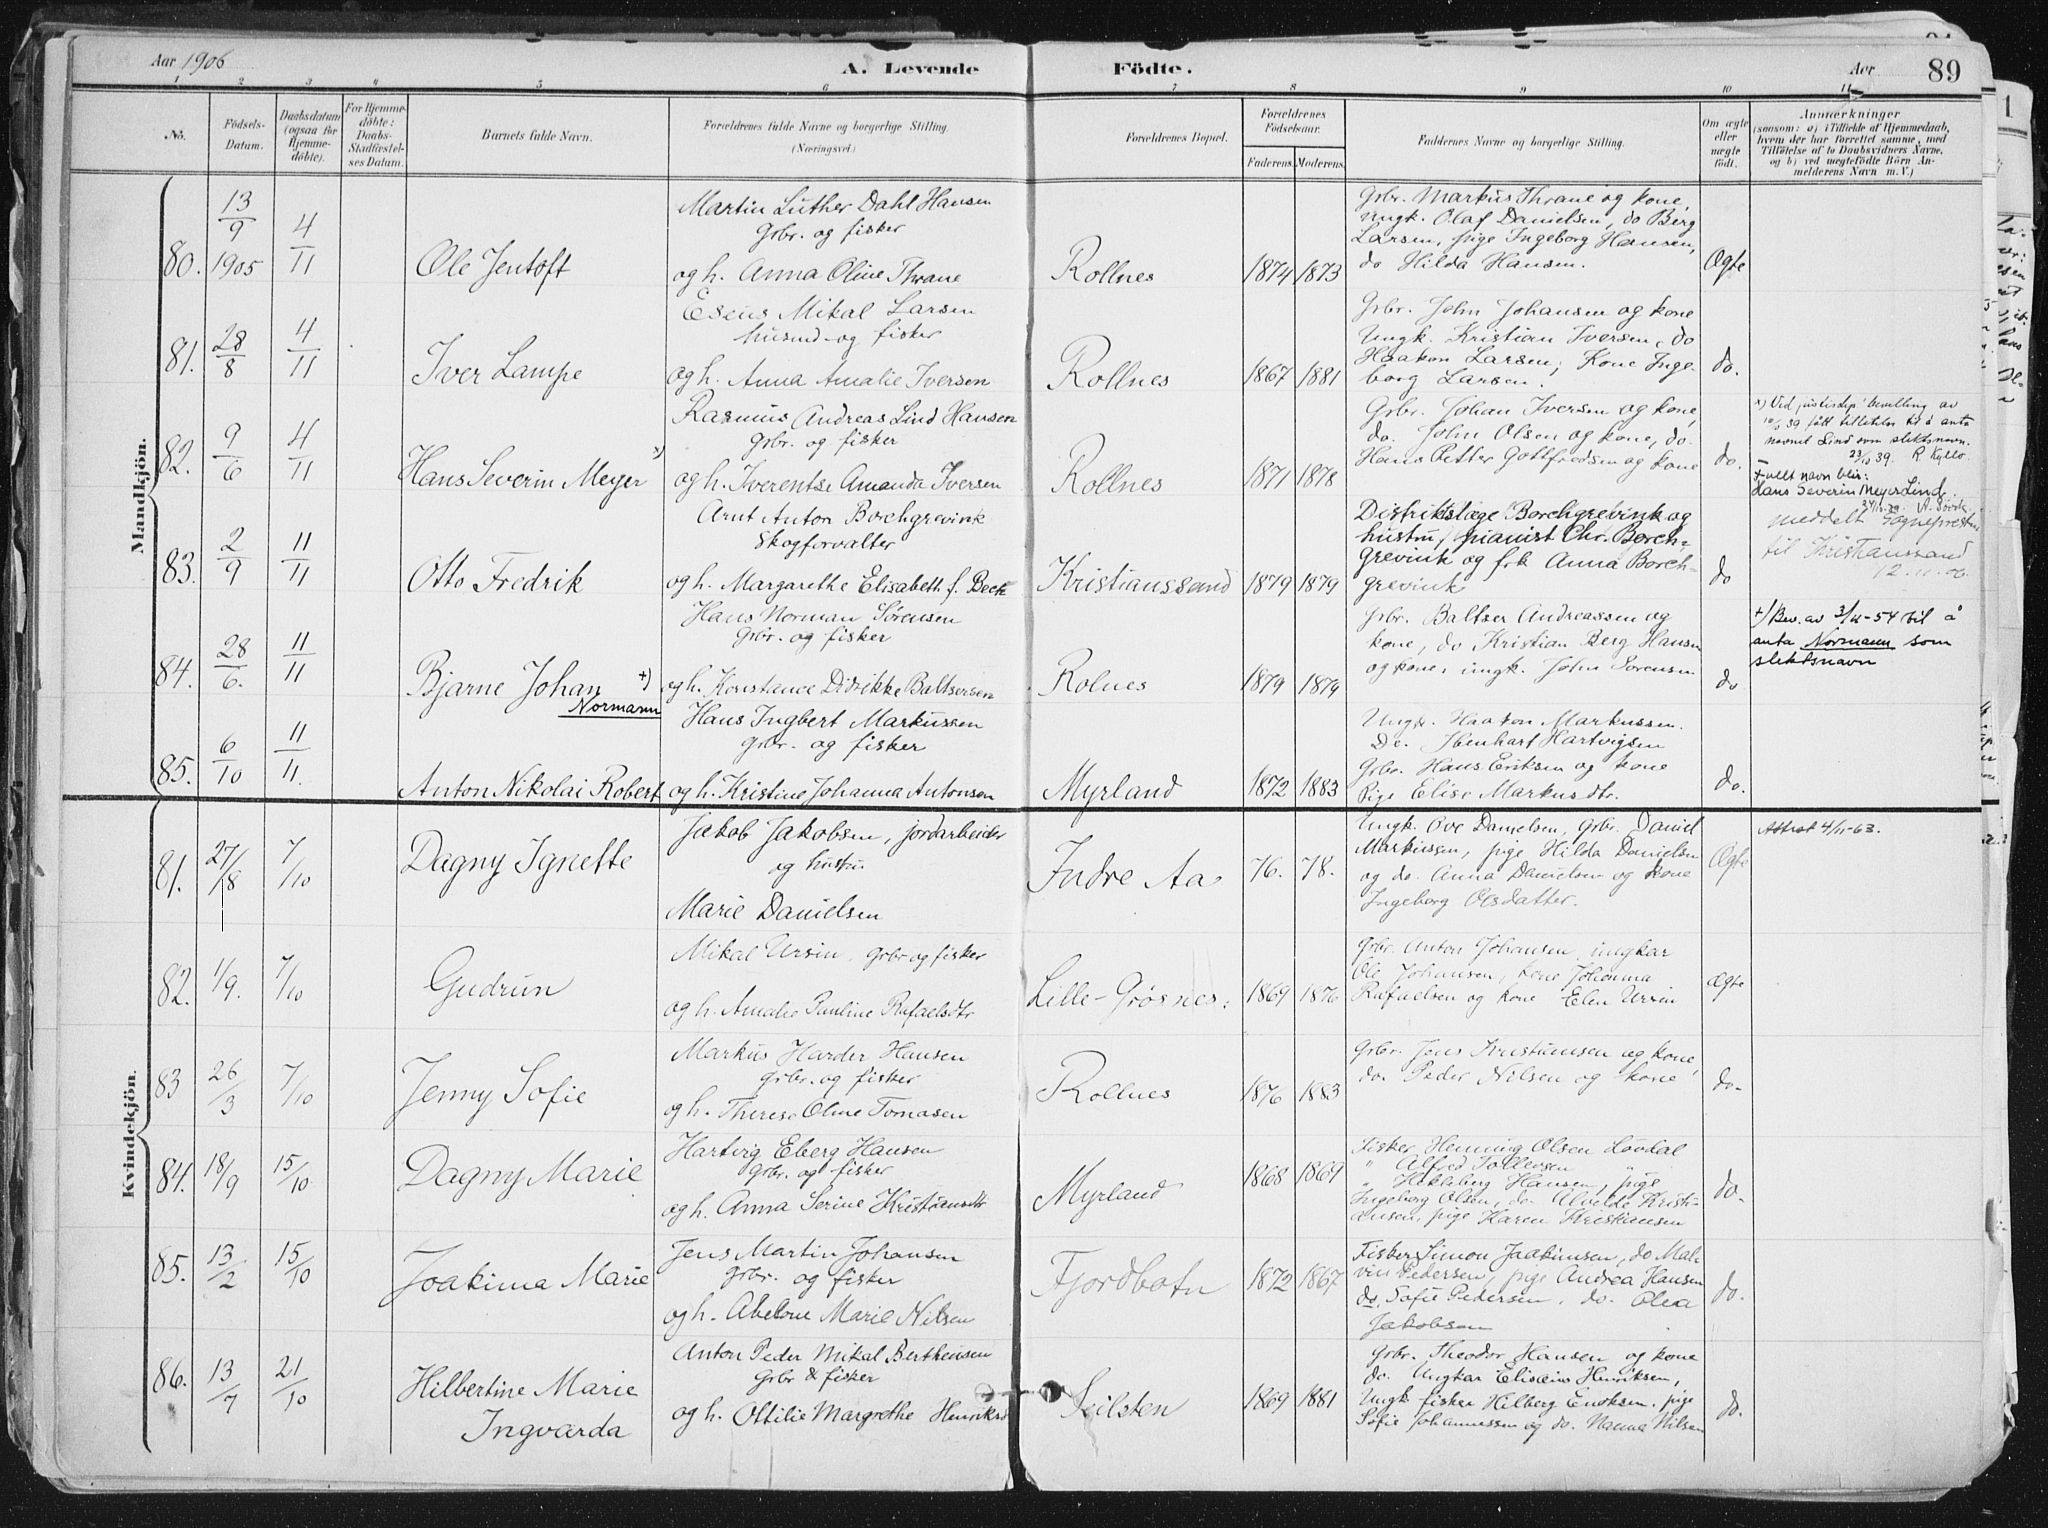 Aar 1906
A. Levende Födte.
Aar
89
1 2 3 4 5 6 7 8 9 10 11
No.
Födsels-Datum.
Daabsdatum (ogsaa for Hjemmedöbte).
For Hjemmedöbte: Daabs-Stadfæstelses Datum.
Barnets fulde Navn.
Forældrenes fulde Navne og borgerlige Stilling.
(Næringsvei.)
Forældrenes Bopæl.
Forældrenes Födselsaar.
Faderens. Moderens.
Faddernes Navne og borgerlige Stilling.
Om ægte eller uægte födt.
Anmærkninger
(saasom: a) i Tilfælde af Hjemmedaab,
hvem der har forrettet samme, med
Tilföielse af to Daabsvidners Navne,
og b) ved uægtefödte Börn Anmelderens Navn m. V.)
Mandkjön.
80. 13/9 1905 4/11 Ole Jentoft
Martin Luther Dahl Hansen
Grbr. og fisker
og h. Anna Oline Thrane
Rollnes 1874 1873
Grbr. Markus Thrane og kone,
ungk. Olaf Danielsen, do Berg
Larsen, pige Ingeborg Hansen,
do Hilda Hansen.
Ægte
81. 28/8 4/11 Iver Lampe
Eseus Mikal Larsen
husmd. og fisker
og h. Anna Amalie Iversen
Rollnes 1867 1881
Grbr. John Johansen og kone
Ungk. Kristian Iversen, do
Haakon Larsen; Kone Inge-
borg Larsen.
do.
82. 9/6 4/11 Hans Severin Meyer x)
Rasmus Andreas Lind Hansen
Grbr. og fisker
og h. Iverentse Amanda Iversen
Rollnes 1871 1878
Grbr. Johan Iversen og kone,
do. John Olsen og kone, do.
Hans Petter Gottfredsen og kone
do.
x) Ved justisdep' bevilling av
10/10 39 fått tillatelse til å anta
navnet Lind som slektsnavn.
23/10 39. R. Kyllo.
Fullt navn blir:
Hans Severin Meyer Lind
83. 2/9 11/11 Otto Fredrik
Arnt Anton Borchgrevink
Skogforvalter
og h. Margarethe Elisabeth f. Beck
Kristianssand 1879 1879
Distriktslæge Borchgrevink og
hustru, pianist Chr. Borch-
grevink og frk Anna Borch-
grevink
do
meddelt Sogneprest
til Kristianssand
12-11-06
84. 28/6. 11/11 Bjarne Johan +)
Normann
Hans Norman Sørensen
Grbr. og fisker
og h. Konstance Didrikke Baltsersen
Rolnes 1879 1879
Grbr. Baltser Andreassen og
kone, do Kristian Berg Hansen
og kone, ungk. John Sørensen
do
+) Bev. av 3/11-54 til å
anta Normann som
slektsnavn
85. 6/10 11/11. Anton Nikolai Robert
Hans Ingbert Markussen
Grbr. og fisker
og h. Kristine Johanna Antonsen
Myrland 1872 1883
Ungk. Haakon Markussen.
Do. Ibenhart Hartvigsen
Grbr. Hans Eriksen og kone
Pige Elise Markusdtr.
do.
Kvindekjön.
81. 27/8 7/10 Dagny Ignette
Jakob Jakobsen, jordarbeider
og hustru
Marie Danielsen
Indre Aa 76. 78.
Ungk. Ove Danielsen, Grbr. Daniel
Markussen, pige Hilda Danielsen
og do. Anna Danielsen og kone
Ingeborg Olsdatter.
Ægte
Attest 4/11-63.
82. 1/9. 7/10 Gudrun
Mikal Ursin. Grbr og fisker
og h. Amalie Pauline Rafaelsdtr
Lille-Grøsnes. 1869 1876
Grbr. Anton Johansen, ungkar
Ole Johansen, kone Johanna
Rafaelsen og kone Elen Ursin
Ægte
83 26/3 7/10 Jenny Sofie
Markus Harder Hansen
Grbr. og fisker
og h. Therese Oline Tomasen
Rollnes 1876 1883
Grbr. Jens Kristiansen og kone,
do. Peder Nilsen og kone
do.
84. 18/9 15/10 Dagny Marie
Hartvig Eberg Hansen
Grbr. og fisker
og h. Anna Serine Kristiansdtr
Myrland 1868 1869
Fisker Henning Olsen Løvdal
" Alfred Tollevsen
" Hekleberg Hansen, pige
Ingeborg Olsen, do Alvilde Kristi-
ansen, pige Karen Kristiansen
do.
85. 13/2 15/10 Joakima Marie
Jens Martin Johansen
Grbr. og fisker
og h. Abelone Marie Nilsen
Fjordbotn 1872 1867
Fisker Simon Joakimsen, do Mal-
vin Pedersen, pige Andrea Hansen
do. Sofie Pedersen, do. Olea
Jakobsen
do.
86. 13/7 21/10 Hilbertine Marie
Ingvarda
Anton Peder Mikal Berthensen
Grbr & fisker
og h. Ottilie Margrethe Henriksd
Seilsten 1869 1881
Grbr. Theodor Hansen og kone
do. Ungkar Elisæus Henriksen,
Ungk fisker Hilberg Enoksen, pige
Sofie Johannessen og do. Nanna Nilsen
do.